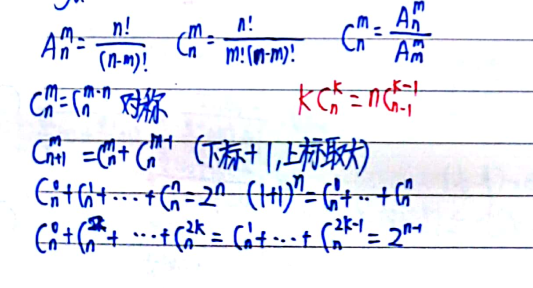 A_n^m = n!/(n-m)!  C_n^m = n!/m!(n-m)!  C_n^m = A_n^m/A_m^m
C_n^m = C_n^{m-n} 对称  kC_n^k = nC_{n-1}^{k-1}
C_{n+1}^m = C_n^m + C_n^{m-1} (下标+1,上标取大)
C_n^0 + C_n^1 + ... + C_n^n = 2^n  (1+1)^n = C_n^0 + ... + C_n^n
C_n^0 + C_n^2 + ... + C_n^{2k} = C_n^1 + ... + C_n^{2k-1} = 2^{n-1}